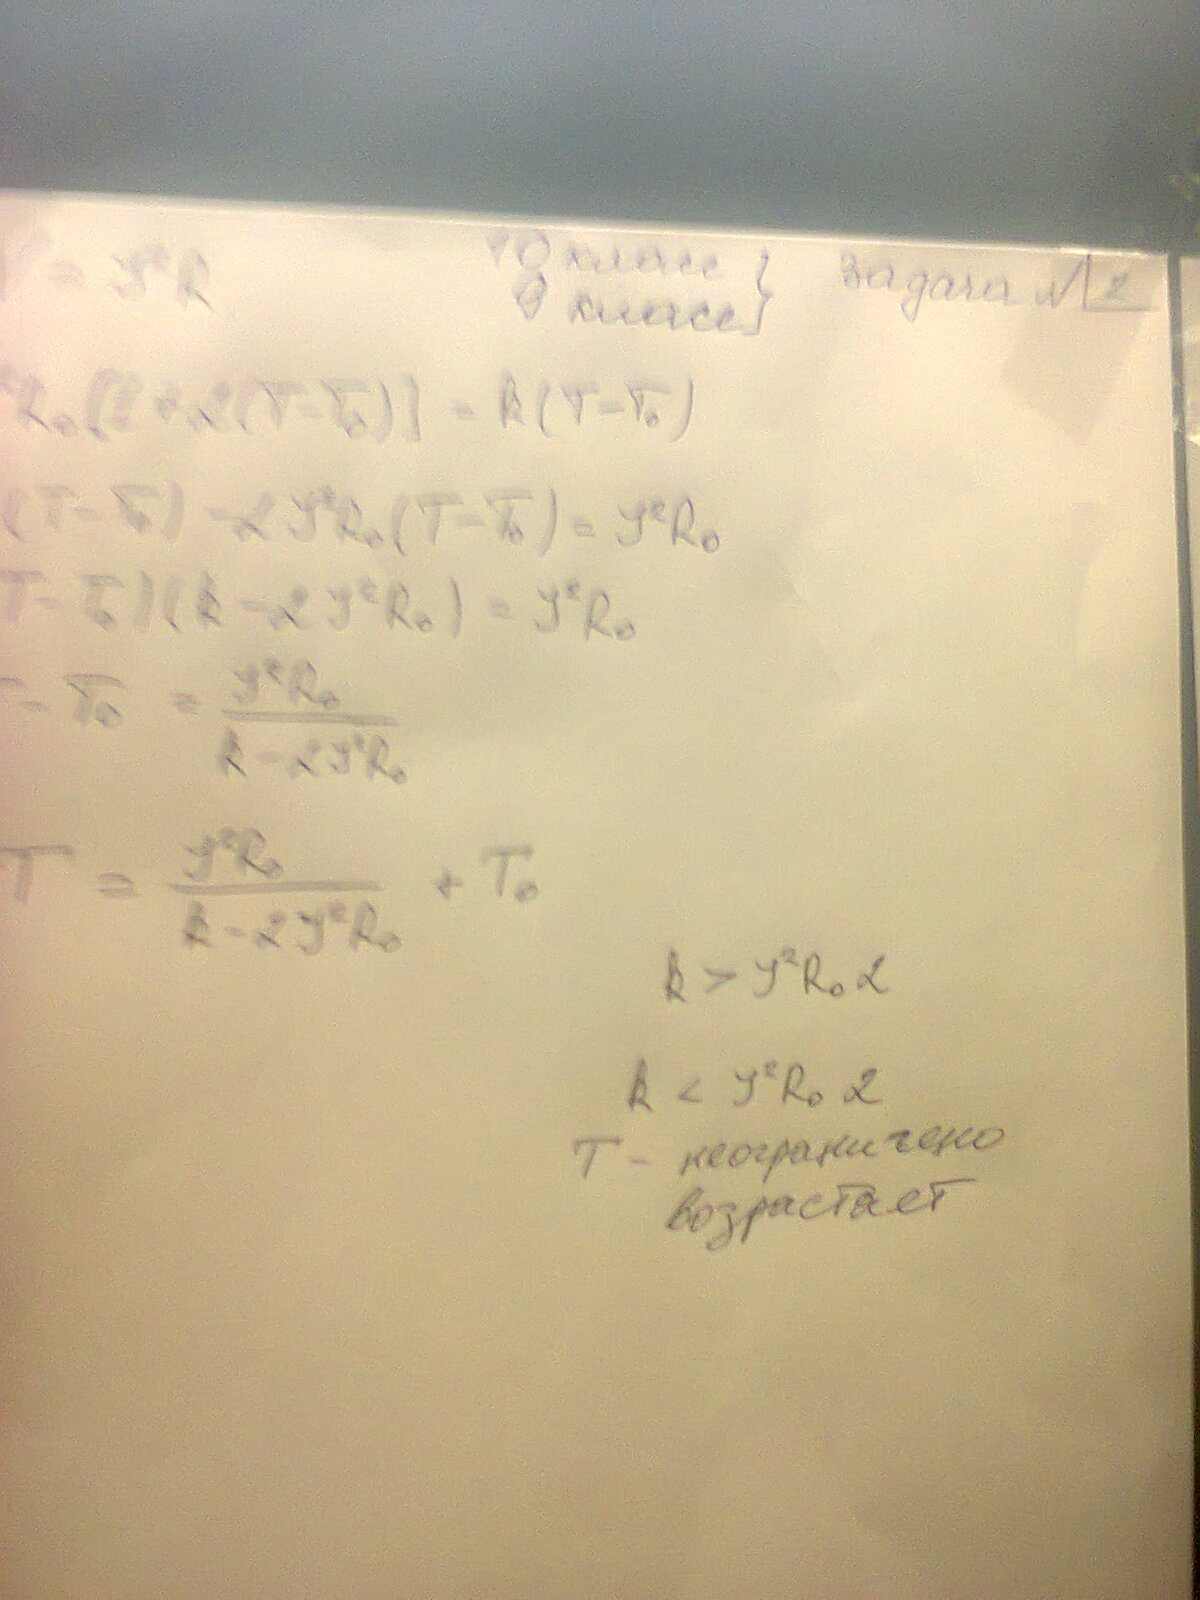 = I²R
10 класс }
9 класс }
задача № 2
R₀[1 + α(T-T₀)] = k(T-T₀)
(T-T₀) - αI²R₀(T-T₀) = I²R₀
T-T₀)(k - αI²R₀) = I²R₀
- T₀ = I²R₀ / k - αI²R₀
T = I²R₀ / k - αI²R₀ + T₀
k > I²R₀α
k < I²R₀α
T - неограничено
возрастает